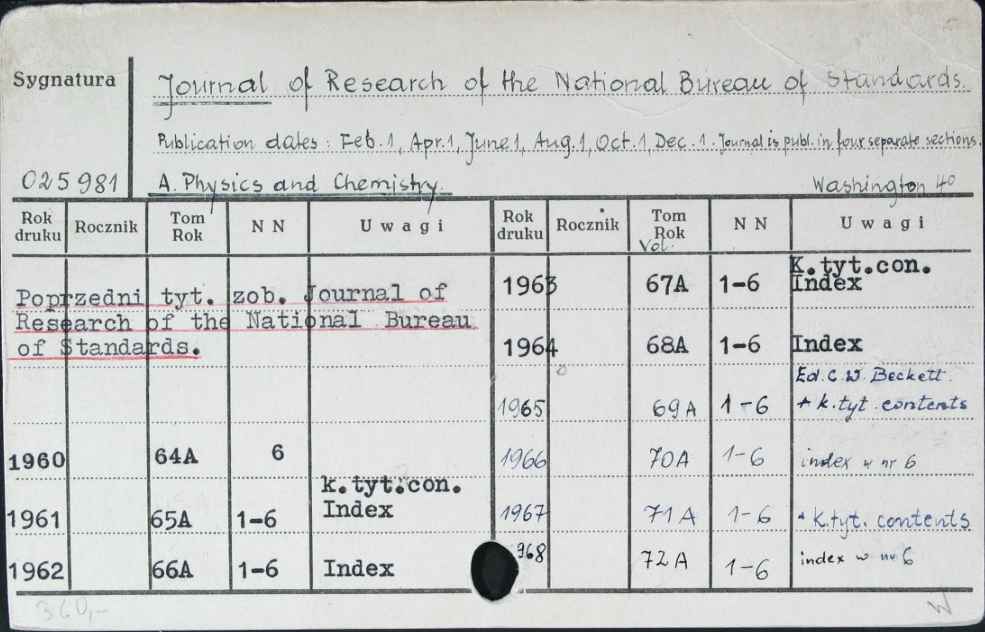 Sygnatura
Journal of Research of the National Bureau of Standards.
Publication dates: Feb.1, Apr.1, June1, Aug.1, Oct.1, Dec.1. Journal is publ. in four separate sections.
025981 A. Physics and Chemistry. Washington 40
Rok druku Rocznik Tom Rok NN Uwagi Rok druku Rocznik Tom Rok Vol. NN Uwagi
Poprzedni tyt. zob. Journal of
Research of the National Bureau
of Standards.
1960 64A 6
k.tyt.con.
1961 65A 1-6 Index
1962 66A 1-6 Index
K.tyt.con.
1963 67A 1-6 Index
1964 68A 1-6 Index
Ed. C. W. Beckett.
1965 69A 1-6 + k.tyt contents
1966 70A 1-6 index w nr 6
1967 71A 1-6 + k.tyt. contents
968 72A 1-6 index w nr 6
360,- W